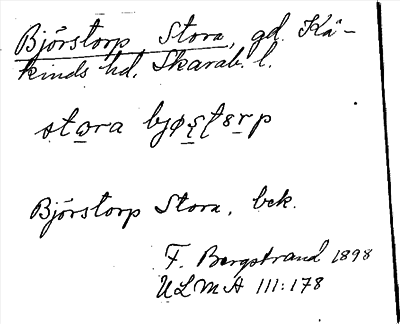 Björstorp Stora, gd. Kå-
kinds hd. Skarab. l.
stora bjørstərp
Björstorp Stora, bek.
F. Bergstrand 1898
ULMA 111:178